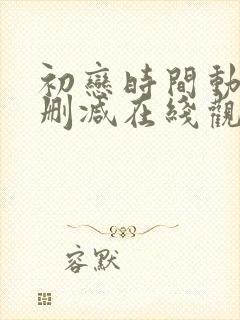 初戀時間動
刪减在綫觀
容默